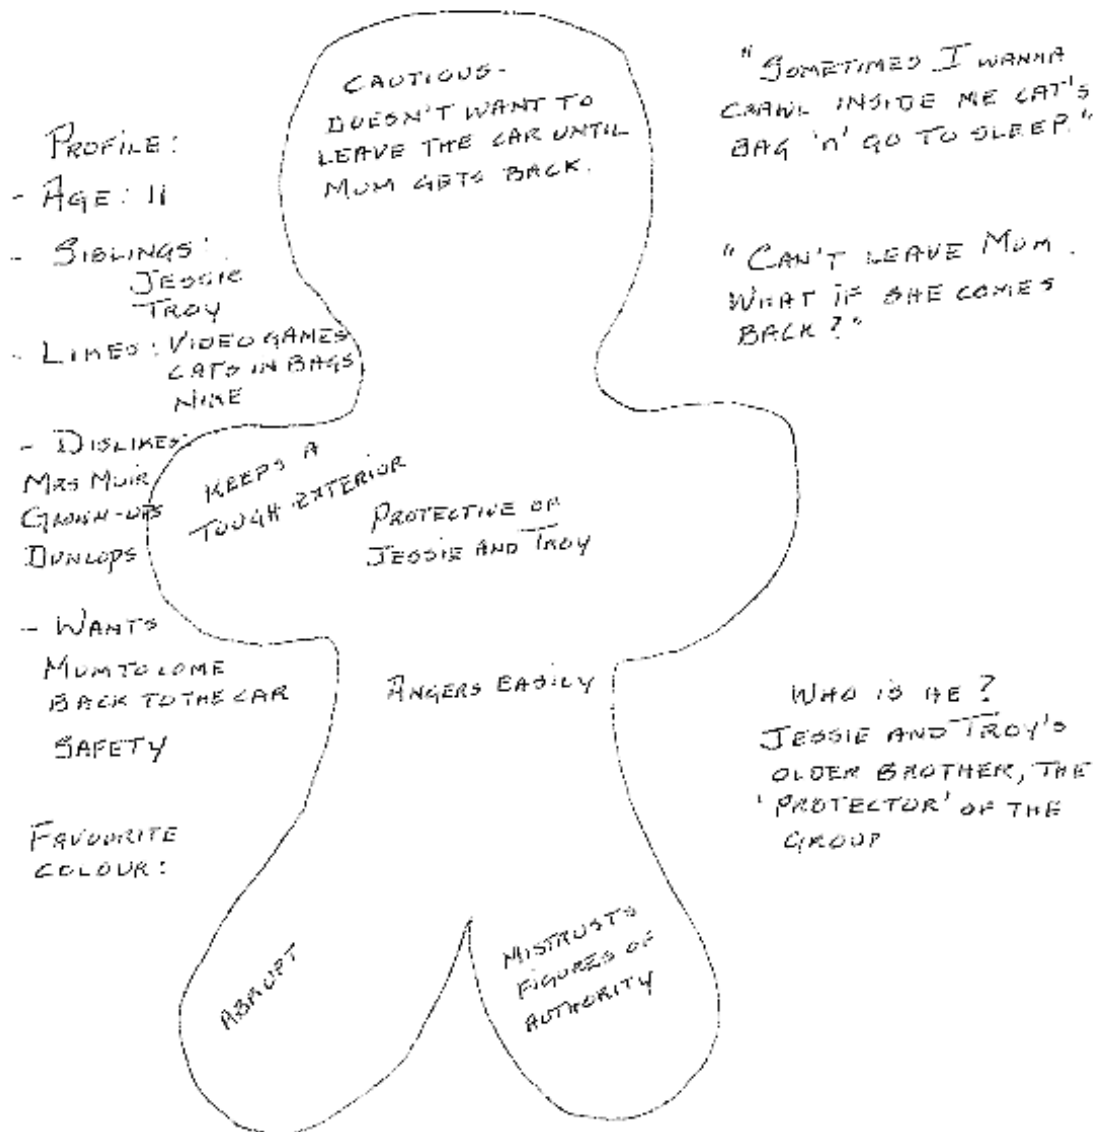 PROFILE:
- AGE: 11
- SIBLINGS:
JESSIE
TROY
- LIKES: VIDEO GAMES
CATS IN BAGS
NIKE
- DISLIKES:
MRS MUIR
GROWN-UPS
DUNLOPS
- WANTS
MUM TO COME
BACK TO THE CAR
SAFETY
FAVOURITE
COLOUR:
CAUTIOUS-
DOESN'T WANT TO
LEAVE THE CAR UNTIL
MUM GETS BACK.
KEEPS A
TOUGH EXTERIOR
PROTECTIVE OF
JESSIE AND TROY
ANGERS EASILY
ABRUPT
MISTRUSTS
FIGURES OF
AUTHORITY
"SOMETIMES I WANNA
CRAWL INSIDE ME CAT'S
BAG 'N' GO TO SLEEP."
"CAN'T LEAVE MUM.
WHAT IF SHE COMES
BACK?"
WHO IS HE?
JESSIE AND TROY'S
OLDER BROTHER, THE
'PROTECTOR' OF THE
GROUP